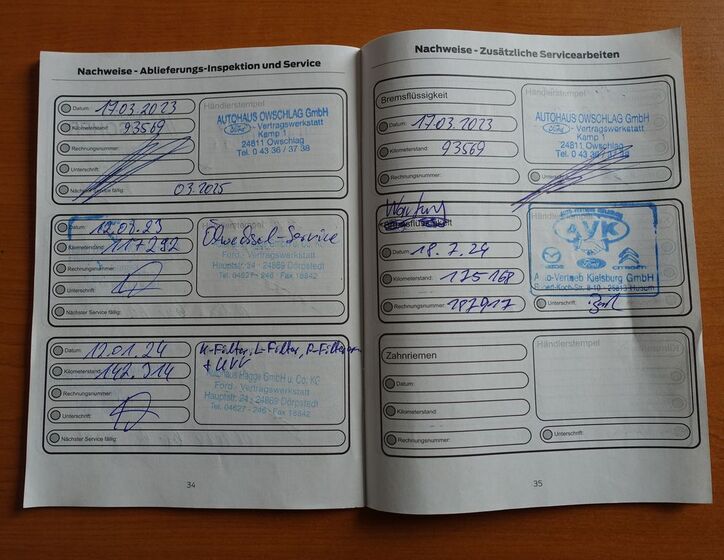 Nachweise - Ablieferungs-Inspektion und Service
Datum: 17.03.2023
Händlerstempel
Kilometerstand: 93569
AUTOHAUS OWSCHLAG GmbH
Ford - Vertragswerkstatt
Kamp 1
24811 Owschlag
Tel. 0 43 36 / 37 38
Rechnungsnummer:
Unterschrift:
Nächster Service fällig: 03.2025
Datum: 12.07.23
Kilometerstand: 117292
Ölwechsel-Service
Ford - Vertragswerkstatt
Hauptstr. 24 - 24869 Dörpstedt
Tel. 04627 - 246 - Fax 18842
Rechnungsnummer:
Unterschrift:
Nächster Service fällig:
Datum: 12.01.24
Kilometerstand: 142.314
K-Filter, L-Filter, P-Filter
Autohaus Hagge GmbH u. Co. KG
Ford - Vertragswerkstatt
Hauptstr. 24 - 24869 Dörpstedt
Tel. 04627 - 246 - Fax 18842
Rechnungsnummer:
Unterschrift:
Nächster Service fällig:
34
Nachweise - Zusätzliche Servicearbeiten
Bremsflüssigkeit
Händlerstempel
Datum: 17.03.2023
Kilometerstand: 93569
AUTOHAUS OWSCHLAG GmbH
Ford - Vertragswerkstatt
Kamp 1
24811 Owschlag
Tel. 0 43 36 / 37 38
Rechnungsnummer:
Unterschrift:
Wartung
Bremsflüssigkeit
Datum: 18.7.24
Kilometerstand: 175168
Rechnungsnummer: 187917
AVK
mazda
Ford
CITROËN
Auto-Vertrieb Kielsburg GmbH
Robert-Koch-Str. 8-10 - 25813 Husum
Unterschrift:
Zahnriemen
Händlerstempel
Datum:
Kilometerstand:
Rechnungsnummer:
Unterschrift:
35